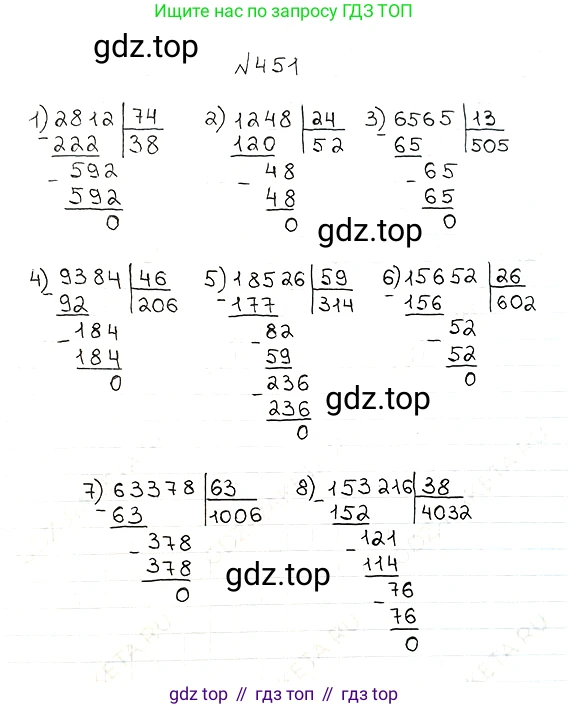 Ищите нас по запросу ГДЗ ТОП
gdz.top
№451
1) 2812 | 74   2) 1248 | 24   3) 6565 | 13
- 222 | 38   120 | 52   - 65 | 505
- 592   - 48   - 65
592   48   65
0   0   0
gdz.top
4) 9384 | 46   5) 18526 | 59   6) 15652 | 26
- 92 | 206   - 177 | 314   - 156 | 602
- 184   - 82   - 52
184   59   52
0   - 236   0
236
0
gdz.top
7) 63378 | 63   8) - 153216 | 38
- 63 | 1006   152 | 4032
- 378   - 121
378   114
0   - 76
76
0
gdz.top
gdz top // гдз топ // gdz top // гдз топ